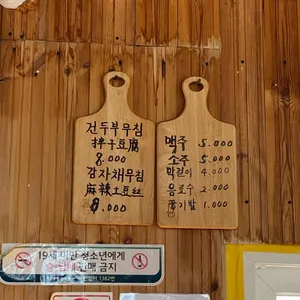 건두부무침
拌干豆腐
8.000
감자채무침
麻辣土豆丝
8.000
맥주 5.000
소주 5.000
막걸리 4.000
음료수 2.000
공기밥 1.000
19세 미만 청소년에게
술·담배 판매 금지